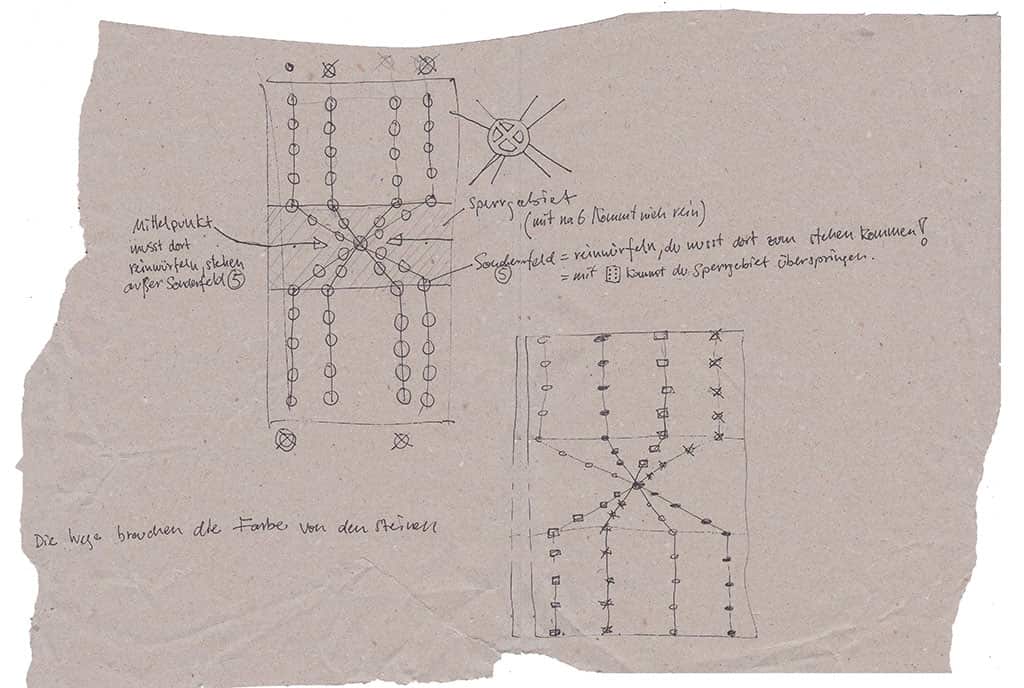 Mittelpunkt
musst dort
reinwürfeln, stehen
außer Sonderfeld ⑤
Sperrgebiet
(mit na 6 kommt nich rein)
Sonderfeld = reinwürfeln, du musst dort zum stehen kommen!
⑤
= mit ⚅ kannst du Sperrgebiet überspringen.
Die Wege brauchen die Farbe von den Steinen